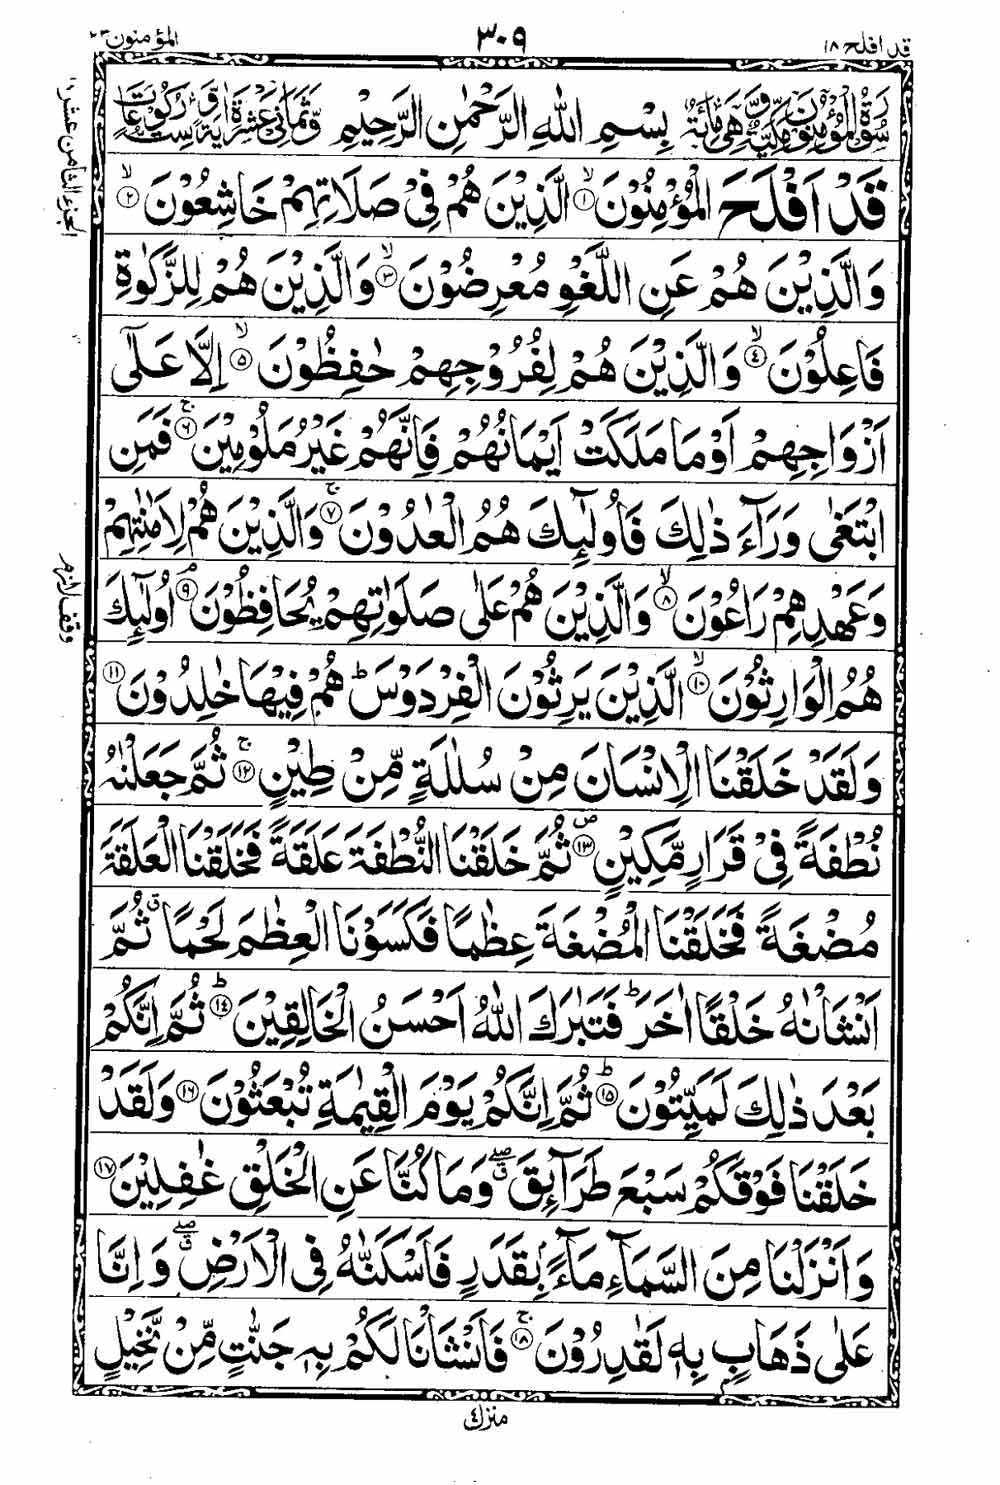 قد افلح ١٨
٣٠٩
المؤمنون ٢٣
سُوْرَةُ الْمُؤْمِنُوْنَ مَكِّيَّةٌ وَّهِيَ مِائَةٌ بِسْمِ اللهِ الرَّحْمٰنِ الرَّحِيْمِ وَّثَمَانِيَ عَشْرَةَ اٰيَةً وَّسِتُّ رُكُوْعَاتٍ
قَدْ اَفْلَحَ الْمُؤْمِنُوْنَ ۙ﴿۱﴾ الَّذِيْنَ هُمْ فِيْ صَلَاتِهِمْ خَاشِعُوْنَ ۙ﴿۲﴾
وَالَّذِيْنَ هُمْ عَنِ اللَّغْوِ مُعْرِضُوْنَ ۙ﴿۳﴾ وَالَّذِيْنَ هُمْ لِلزَّكٰوةِ
فَاعِلُوْنَ ۙ﴿٤﴾ وَالَّذِيْنَ هُمْ لِفُرُوْجِهِمْ حٰفِظُوْنَ ۙ﴿۵﴾ اِلَّا عَلٰٓى
اَزْوَاجِهِمْ اَوْ مَا مَلَكَتْ اَيْمَانُهُمْ فَاِنَّهُمْ غَيْرُ مَلُوْمِيْنَ ۚ﴿۶﴾ فَمَنِ
ابْتَغٰى وَرَآءَ ذٰلِكَ فَاُولٰٓئِكَ هُمُ الْعٰدُوْنَ ۚ﴿۷﴾ وَالَّذِيْنَ هُمْ لِاَمٰنٰتِهِمْ
وَعَهْدِهِمْ رَاعُوْنَ ۙ﴿۸﴾ وَالَّذِيْنَ هُمْ عَلٰى صَلَوٰتِهِمْ يُحَافِظُوْنَ ۘ﴿۹﴾ اُولٰٓئِكَ
هُمُ الْوَارِثُوْنَ ۙ﴿۱۰﴾ الَّذِيْنَ يَرِثُوْنَ الْفِرْدَوْسَ ؕ هُمْ فِيْهَا خٰلِدُوْنَ ﴿۱۱﴾
وَلَقَدْ خَلَقْنَا الْاِنْسَانَ مِنْ سُلٰلَةٍ مِّنْ طِيْنٍ ۚ﴿۱۲﴾ ثُمَّ جَعَلْنٰهُ
نُطْفَةً فِيْ قَرَارٍ مَّكِيْنٍ ۪﴿۱۳﴾ ثُمَّ خَلَقْنَا النُّطْفَةَ عَلَقَةً فَخَلَقْنَا الْعَلَقَةَ
مُضْغَةً فَخَلَقْنَا الْمُضْغَةَ عِظٰمًا فَكَسَوْنَا الْعِظٰمَ لَحْمًا ق ثُمَّ
اَنْشَاْنٰهُ خَلْقًا اٰخَرَ ؕ فَتَبٰرَكَ اللهُ اَحْسَنُ الْخَالِقِيْنَ ؕ﴿۱٤﴾ ثُمَّ اِنَّكُمْ
بَعْدَ ذٰلِكَ لَمَيِّتُوْنَ ؕ﴿۱۵﴾ ثُمَّ اِنَّكُمْ يَوْمَ الْقِيٰمَةِ تُبْعَثُوْنَ ﴿۱۶﴾ وَلَقَدْ
خَلَقْنَا فَوْقَكُمْ سَبْعَ طَرَآئِقَ ۖق وَمَا كُنَّا عَنِ الْخَلْقِ غٰفِلِيْنَ ﴿۱۷﴾
وَاَنْزَلْنَا مِنَ السَّمَآءِ مَآءًۢ بِقَدَرٍ فَاَسْكَنّٰهُ فِي الْاَرْضِ ۖق وَاِنَّا
عَلٰى ذَهَابٍۭ بِهٖ لَقٰدِرُوْنَ ۚ﴿۱۸﴾ فَاَنْشَاْنَا لَكُمْ بِهٖ جَنّٰتٍ مِّنْ نَّخِيْلٍ
منزل ٤
الجزء الثامن عشر ١٨
وقف لازم